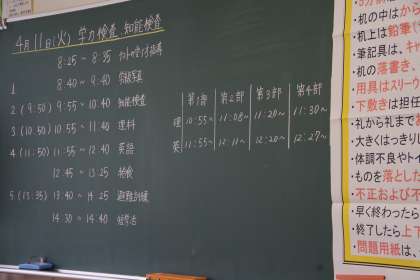 4月11日(火) 学力検査、知能検査
8:25 ~ 8:35
1 8:40 ~ 9:40 学級写真
2 (9:50) 9:55 ~ 10:40 知能検査
3 (10:50) 10:55 ~ 11:40 理科
4 (11:50) 11:55 ~ 12:40 英語
12:45 ~ 13:25 給食
5 (13:35) 13:40 ~ 14:25 避難訓練
14:30 ~ 14:40 短学活
第1部 第2部 第3部 第4部
理 10:55~ 11:08~ 11:20~ 11:30~
英 11:55~ 12:11~ 12:20~ 12:27~
・机の中はから
・机上は鉛筆(
・筆記具は、キャ
・机の落書き、
・用具はスリーウ
・下敷きは担任
・礼から礼までお
・大きくはっきりし
・体調不良やトイ
・ものを落とした
・不正および不
・早く終わったら
・終了したら上下
・問題用紙は、